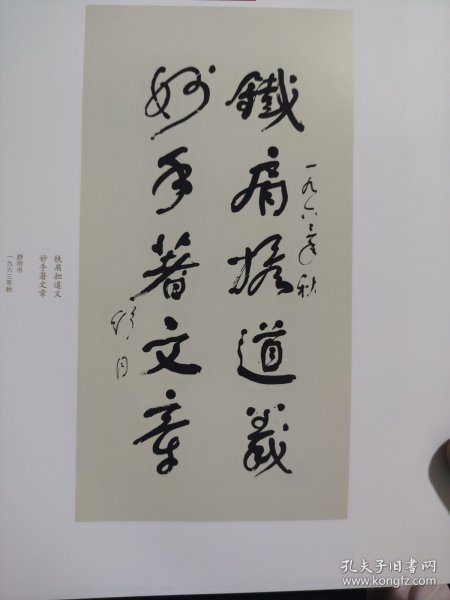 一九六三年秋
鐵肩擔道義
妙手著文章
舒同
铁肩担道义
妙手著文章
舒同书
一九六三年秋
孔夫子旧书网
www.kongfz.com